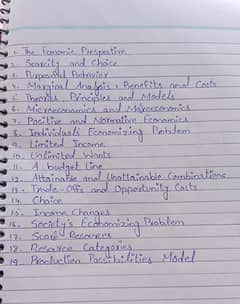 1. The Economic Perspective
2. Scarcity and Choice
3. Purposeful Behavior
4. Marginal Analysis: Benefits and Costs
5. Theories, Principles and Models
6. Microeconomics and Macroeconomics
7. Positive and Normative Economics
8. Individual's Economizing Problem
9. Limited Income
10. Unlimited Wants
11. A budget Line
12. Attainable and Unattainable Combinations
13. Trade-Offs and Opportunity Costs
14. Choice
15. Income Changes
16. Society's Economizing Problem
17. Scarce Resources
18. Resource Categories
19. Production Possibilities Model